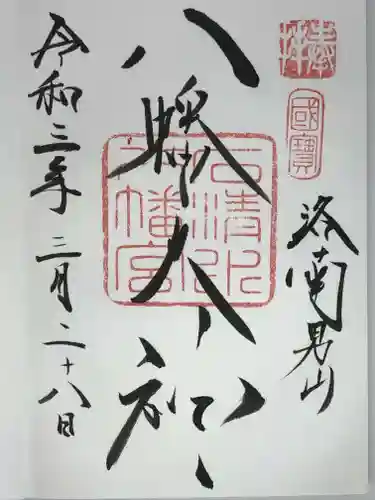 奉拝
國寶
洛南男山
八幡大神
石清水八幡宮
令和三年三月二十八日